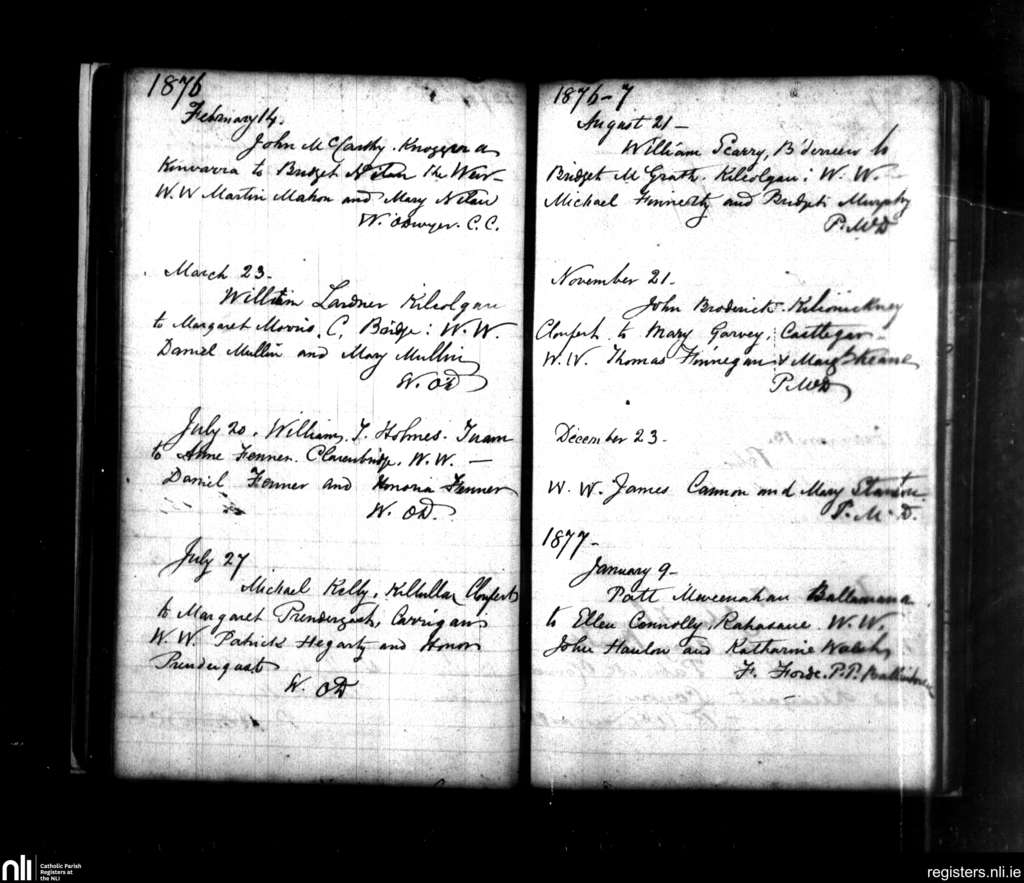 1876
February 14.
John McCarthy. Knoggera
Kinvarra to Bridget Nolan the Weir
W.W Martin Mahon and Mary Nolan
W. ODwyer. C.C.
March 23.
William Lardner Kilcolgan
to Margaret Morris. C. Bridge: W.W.
Daniel Mullin and Mary Mullin
W. OD
July 20. William. J. Holmes. Tuam
to Anne Fenner. Clarenbridge. W.W. —
Daniel Fenner and Honoria Fenner
W. OD.
July 27
Michael Kelly, Killullar Clonfert
to Margaret Prendergast, Carrigans
W.W. Patrick Hegarty and Honor
Prendergast
W. OD
1876-7
August 21 —
William Scarry, B'derreen to
Bridget McGrath. Kilcolgan: W. W. —
Michael Finnerty and Bridget Murphy
P. McD
November 21.
John Broderick. 
Clonfert to Mary Garvey, Castlegar.
W.W. Thomas Finnegan & Margt Keane
P. McD
December 23.
W. W. James Cannon and Mary Stanton.
P. Mc D.
1877 —
January 9 —
Patt Ballamana
to Ellen Connolly, Rahasane. W.W.
John Hanlon and Katharine Walsh
F. Forde. P.P.
nli
Catholic Parish
Registers at
the NLI
registers.nli.ie